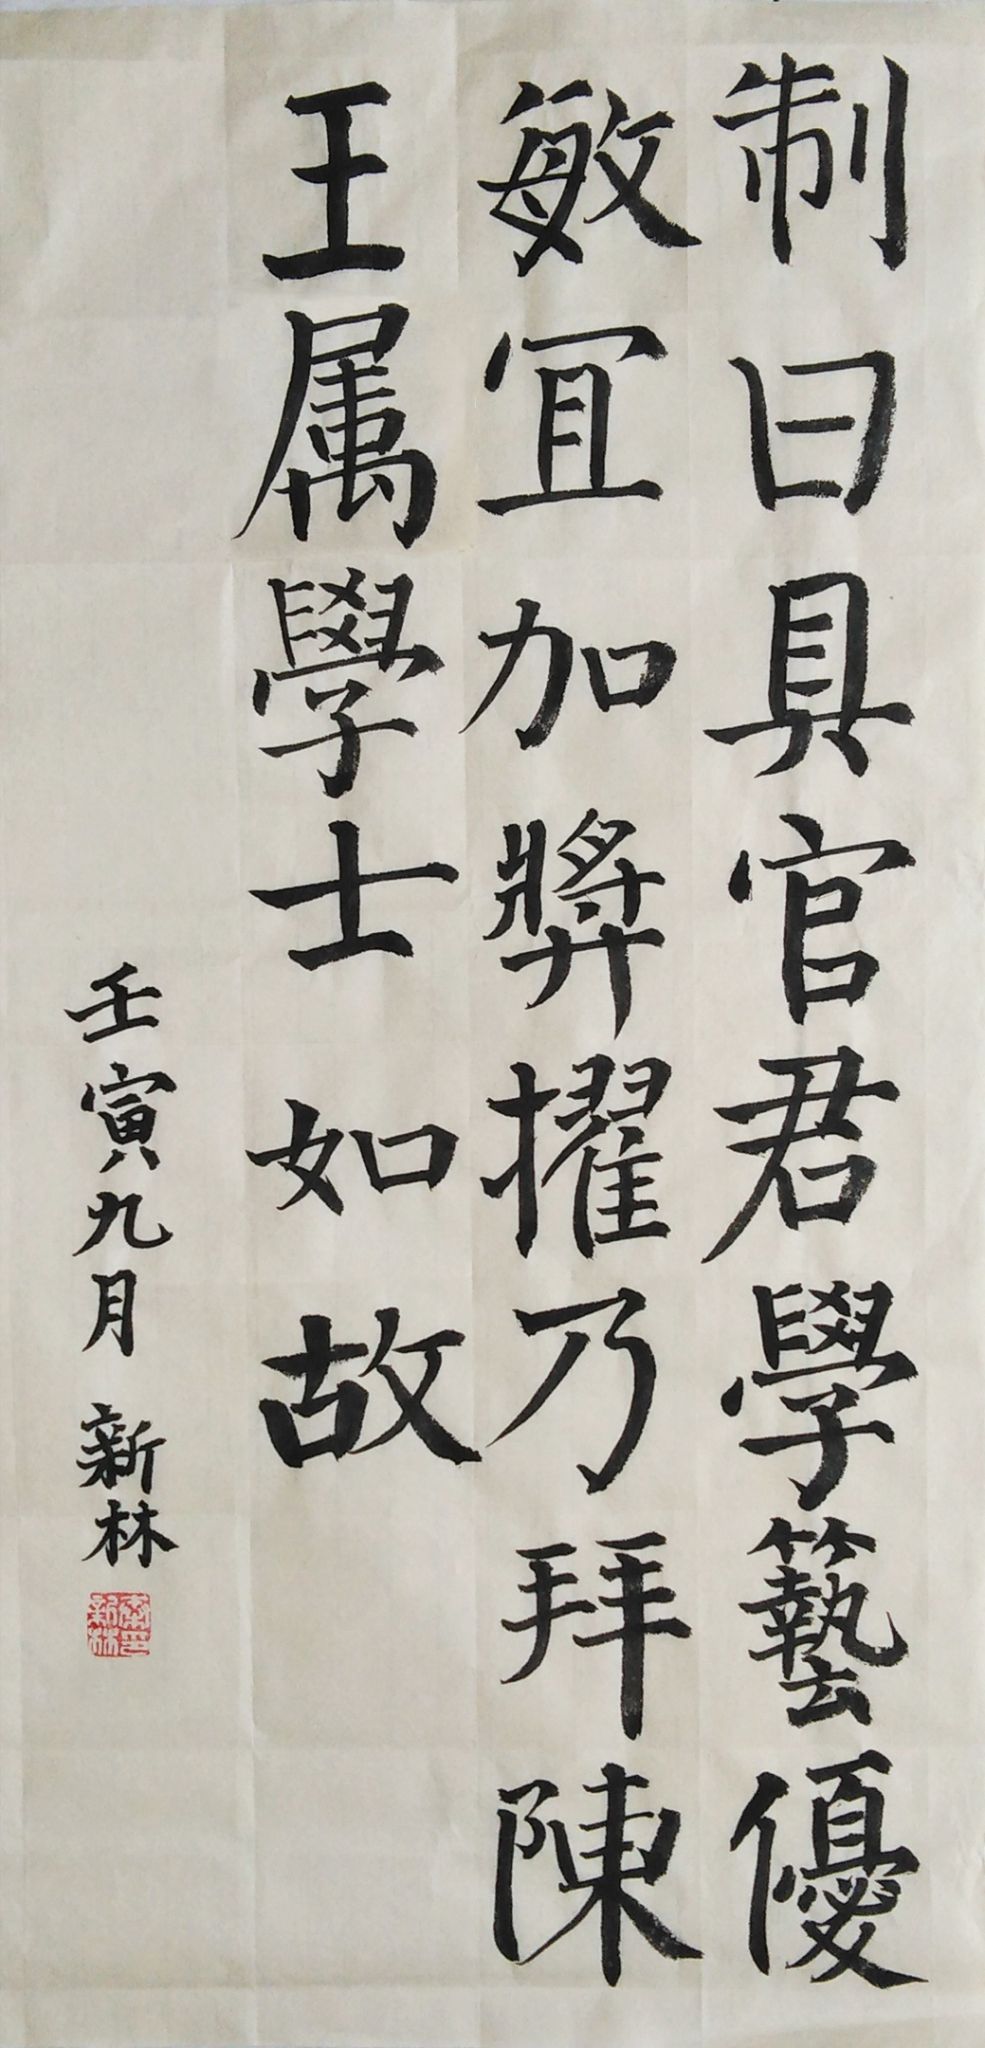 制曰具官君學藝優
敏宜加獎擢乃拜陳
王属學士如故
壬寅九月 新林